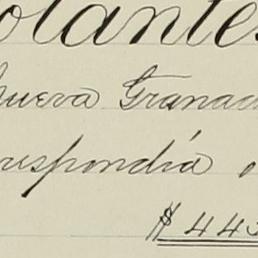 olantes
nueva Granad
respondía
$ 443